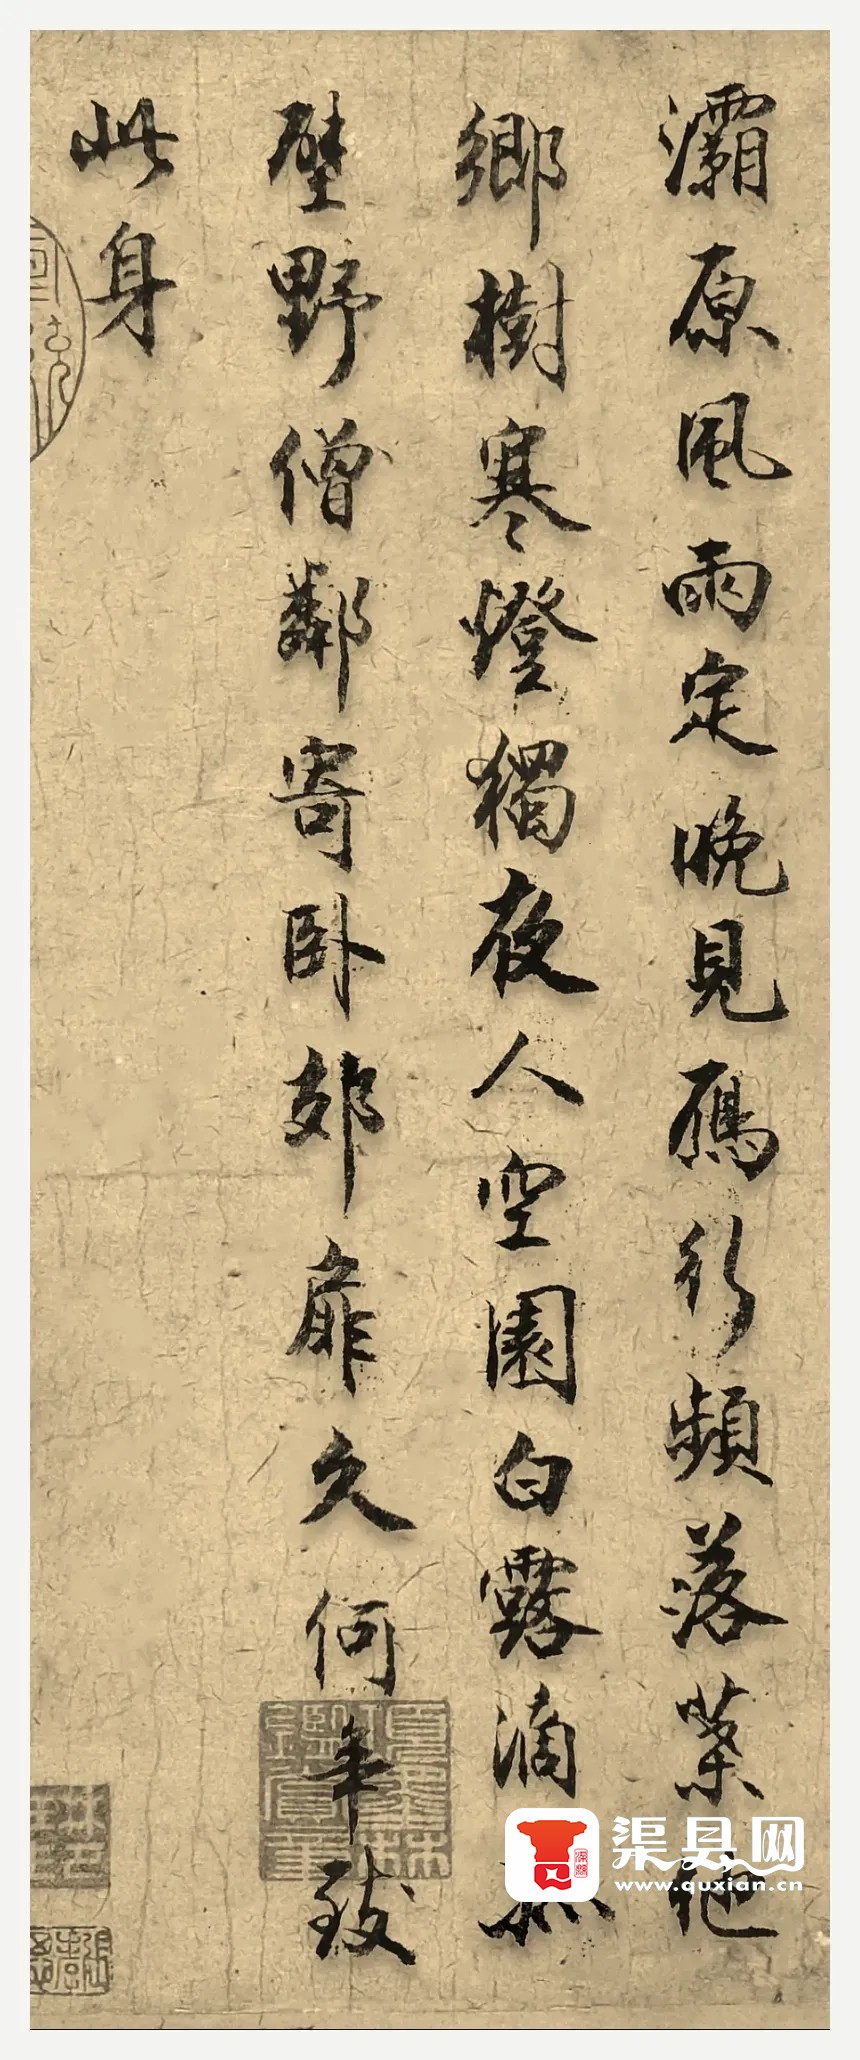 灞原風雨定晚見鴈行頻落葉他
鄉樹寒燈獨夜人空園白露滴孤
壁野僧鄰寄卧郊扉久何年致
此身
渠县网
www.quxian.cn